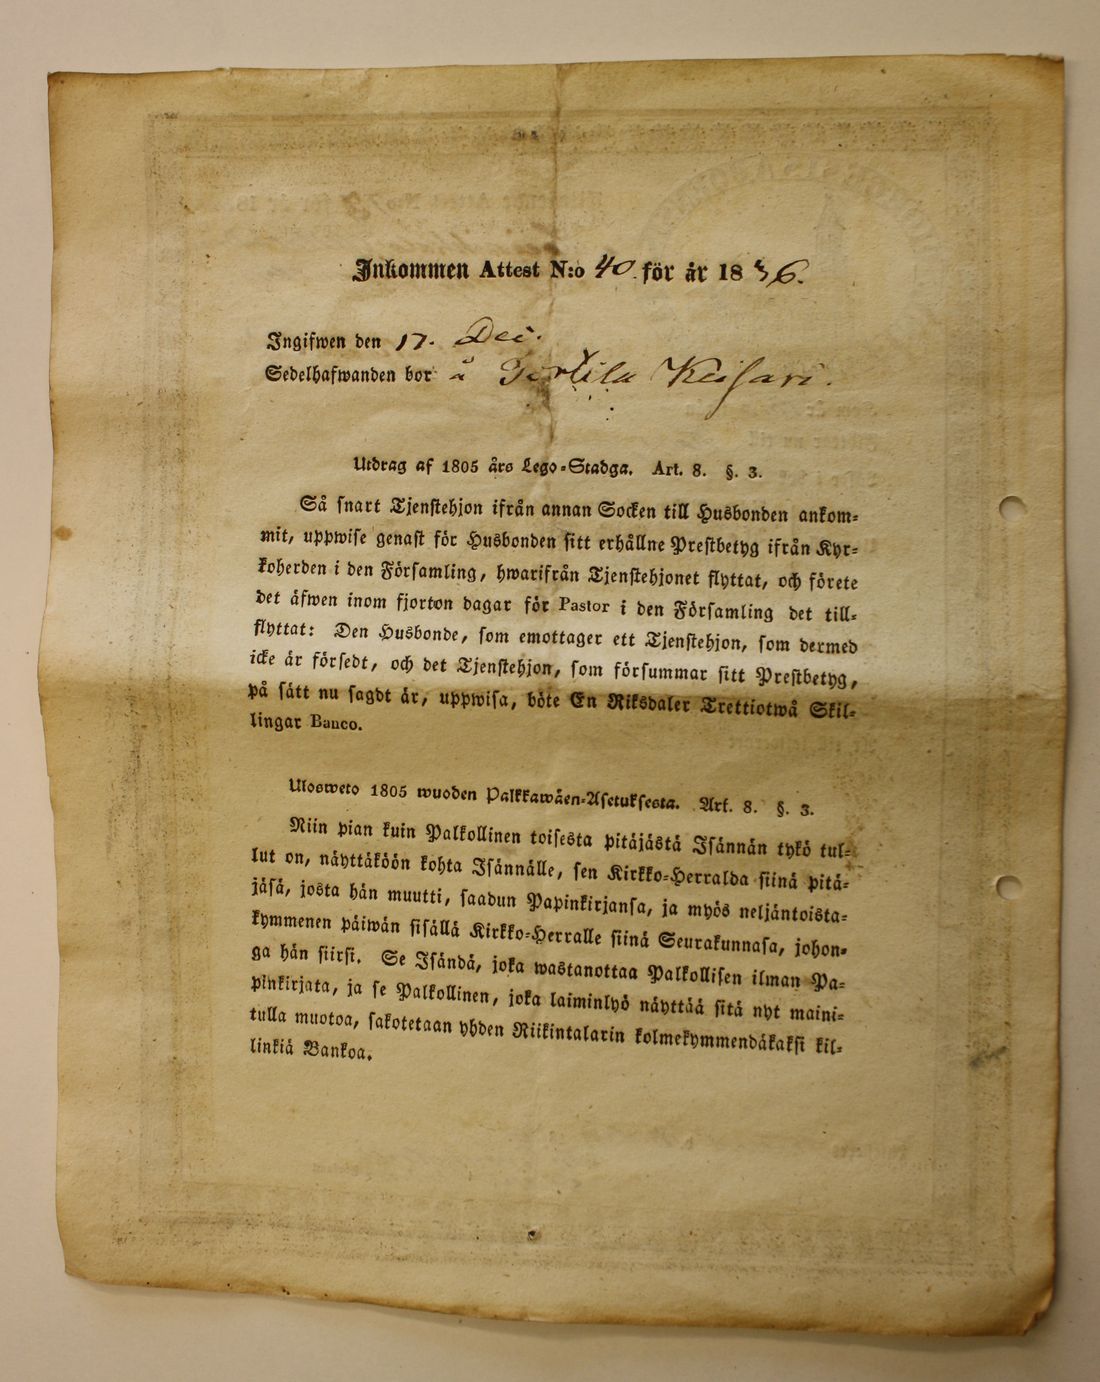 Inkommen Attest N:o 40. för år 1836.
Ingifwen den 17. Dec.
Sedelhafwanden bor å Keisari.
Utdrag af 1805 års Lego-Stadga. Art. 8. §. 3.
Så snart Tjenstehjon ifrån annan Socken till Husbonden ankom-
mit, uppwise genast för Husbonden sitt erhållne Prestbetyg ifrån Kyr-
koherden i den Församling, hwarifrån Tjenstehjonet flyttat, och förete
det äfwen inom fjorton dagar för Pastor i den Församling det till-
flyttat: Den Husbonde, som emottager ett Tjenstehjon, som dermed
icke är försedt, och det Tjenstehjon, som försummar sitt Prestbetyg,
på sätt nu sagdt är, uppwisa, böte En Riksdaler Trettiotwå Skil-
lingar Banco.
Ulosweto 1805 wuoden Palkkawäen-Asetuksesta. Art. 8. §. 3.
Niin pian kuin Palkollinen toisesta pitäjästä Isännän tykö tul-
lut on, näyttäköön kohta Isännälle, sen Kirkko-Herralda siinä pitä-
jäsä, josta hän muutti, saadun Papinkirjansa, ja myös neljäntoista-
kymmenen päiwän sisällä Kirkko-Herralle siinä Seurakunnasa, johon-
ga hän siirsi. Se Isändä, joka wastanottaa Palkollisen ilman Pa-
pinkirjata, ja se Palkollinen, joka laiminlyö näyttää sitä nyt maini-
tulla muotoa, sakotetaan yhden Riikintalarin kolmekymmendäkaksi kil-
linkiä Bankoa.